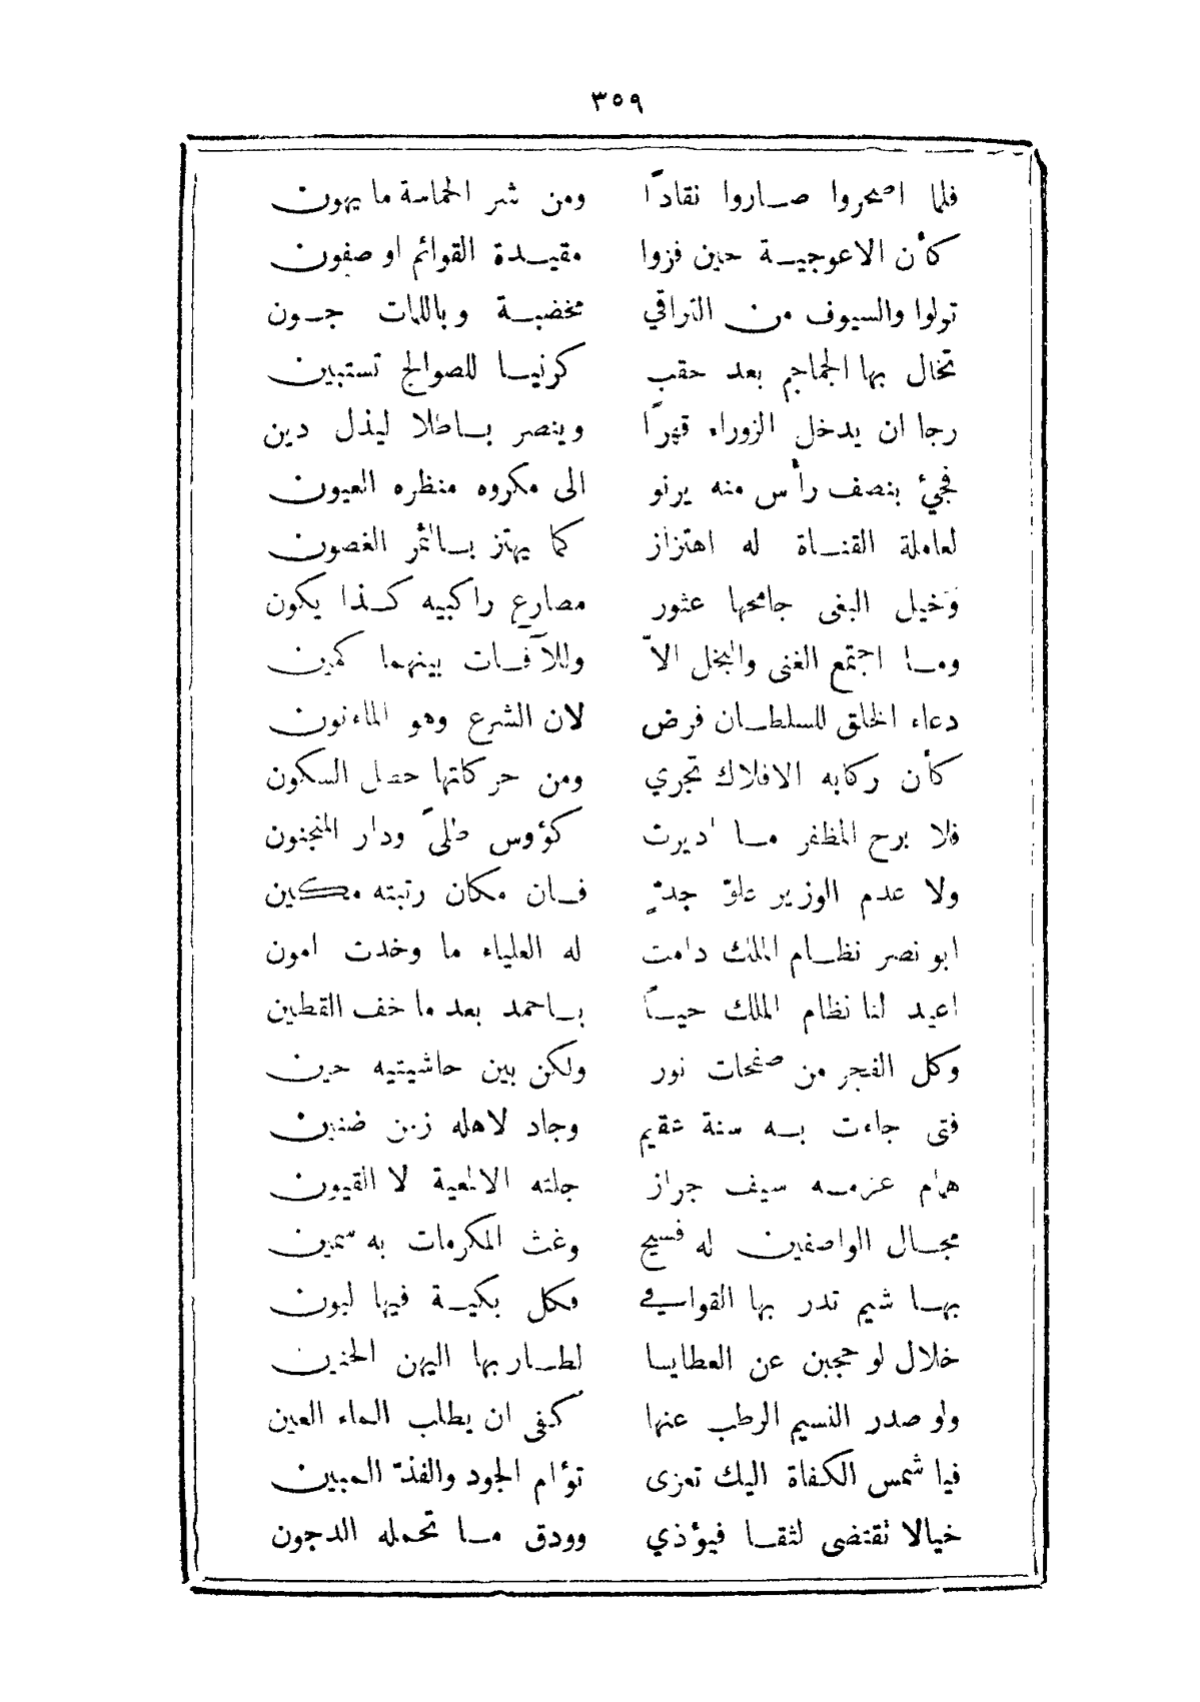 ٣٥٩
فلما اصحروا صاروا نقادًا ومن شر الحماسة ما يهون
كأن الاعوجية حين فزوا مقيدة القوائم او صفون
تولوا والسيوف من التراقي مخضبة وباللمات جون
تخال بها الجماجم بعد حقب كرنيا للصوالج تستبين
رجا ان يدخل الزوراء قهرًا وينصر باطلا ليذل دين
فجئ بنصف رأس منه يرنو الى مكروه منظره العيون
لعاملة القناة له اهتزاز كما يهتز بالثمر الغصون
وخيل البغى جامحها عثور مصارع راكبيه كذا يكون
وما اجتمع الغنى والبخل الاّ وللآفات بينهما كمين
دعاء الخلق للسلطان فرض لان الشرع وهو الماءنون
كأن ركابه الافلاك تجري ومن حركاتها حصل السكون
فلا برح المظفر ما اديرت كؤوس طلىً ودار المنجنون
ولا عدم الوزير علوّ جدٍّ فان مكان رتبته مكين
ابو نصر نظام الملك دامت له العلياء ما وخدت امون
اعيد لنا نظام الملك حيًا باحمد بعد ما خف القطين
وكل الفجر من صفحات نور ولكن بين حاشيتيه حين
فتى جاءت به سنة عقيم وجاد لاهله زمن ضنين
همام عزمه سيف جراز جلته الالمعية لا القيون
مجال الواصفين له فسيح وغث المكرمات به سمين
بها شيم تدر بها القوافي فكل بكية فيها لبون
خلال لو حجبن عن العطايا لطار بها اليهن الحنين
ولو صدر النسيم الرطب عنها كفى ان يطلب الماء العين
فيا شمس الكفاة اليك تعزى تؤام الجود والفذّ المبين
خيالا نقتضى لثقا فيؤذي وودق ما تحمله الدجون